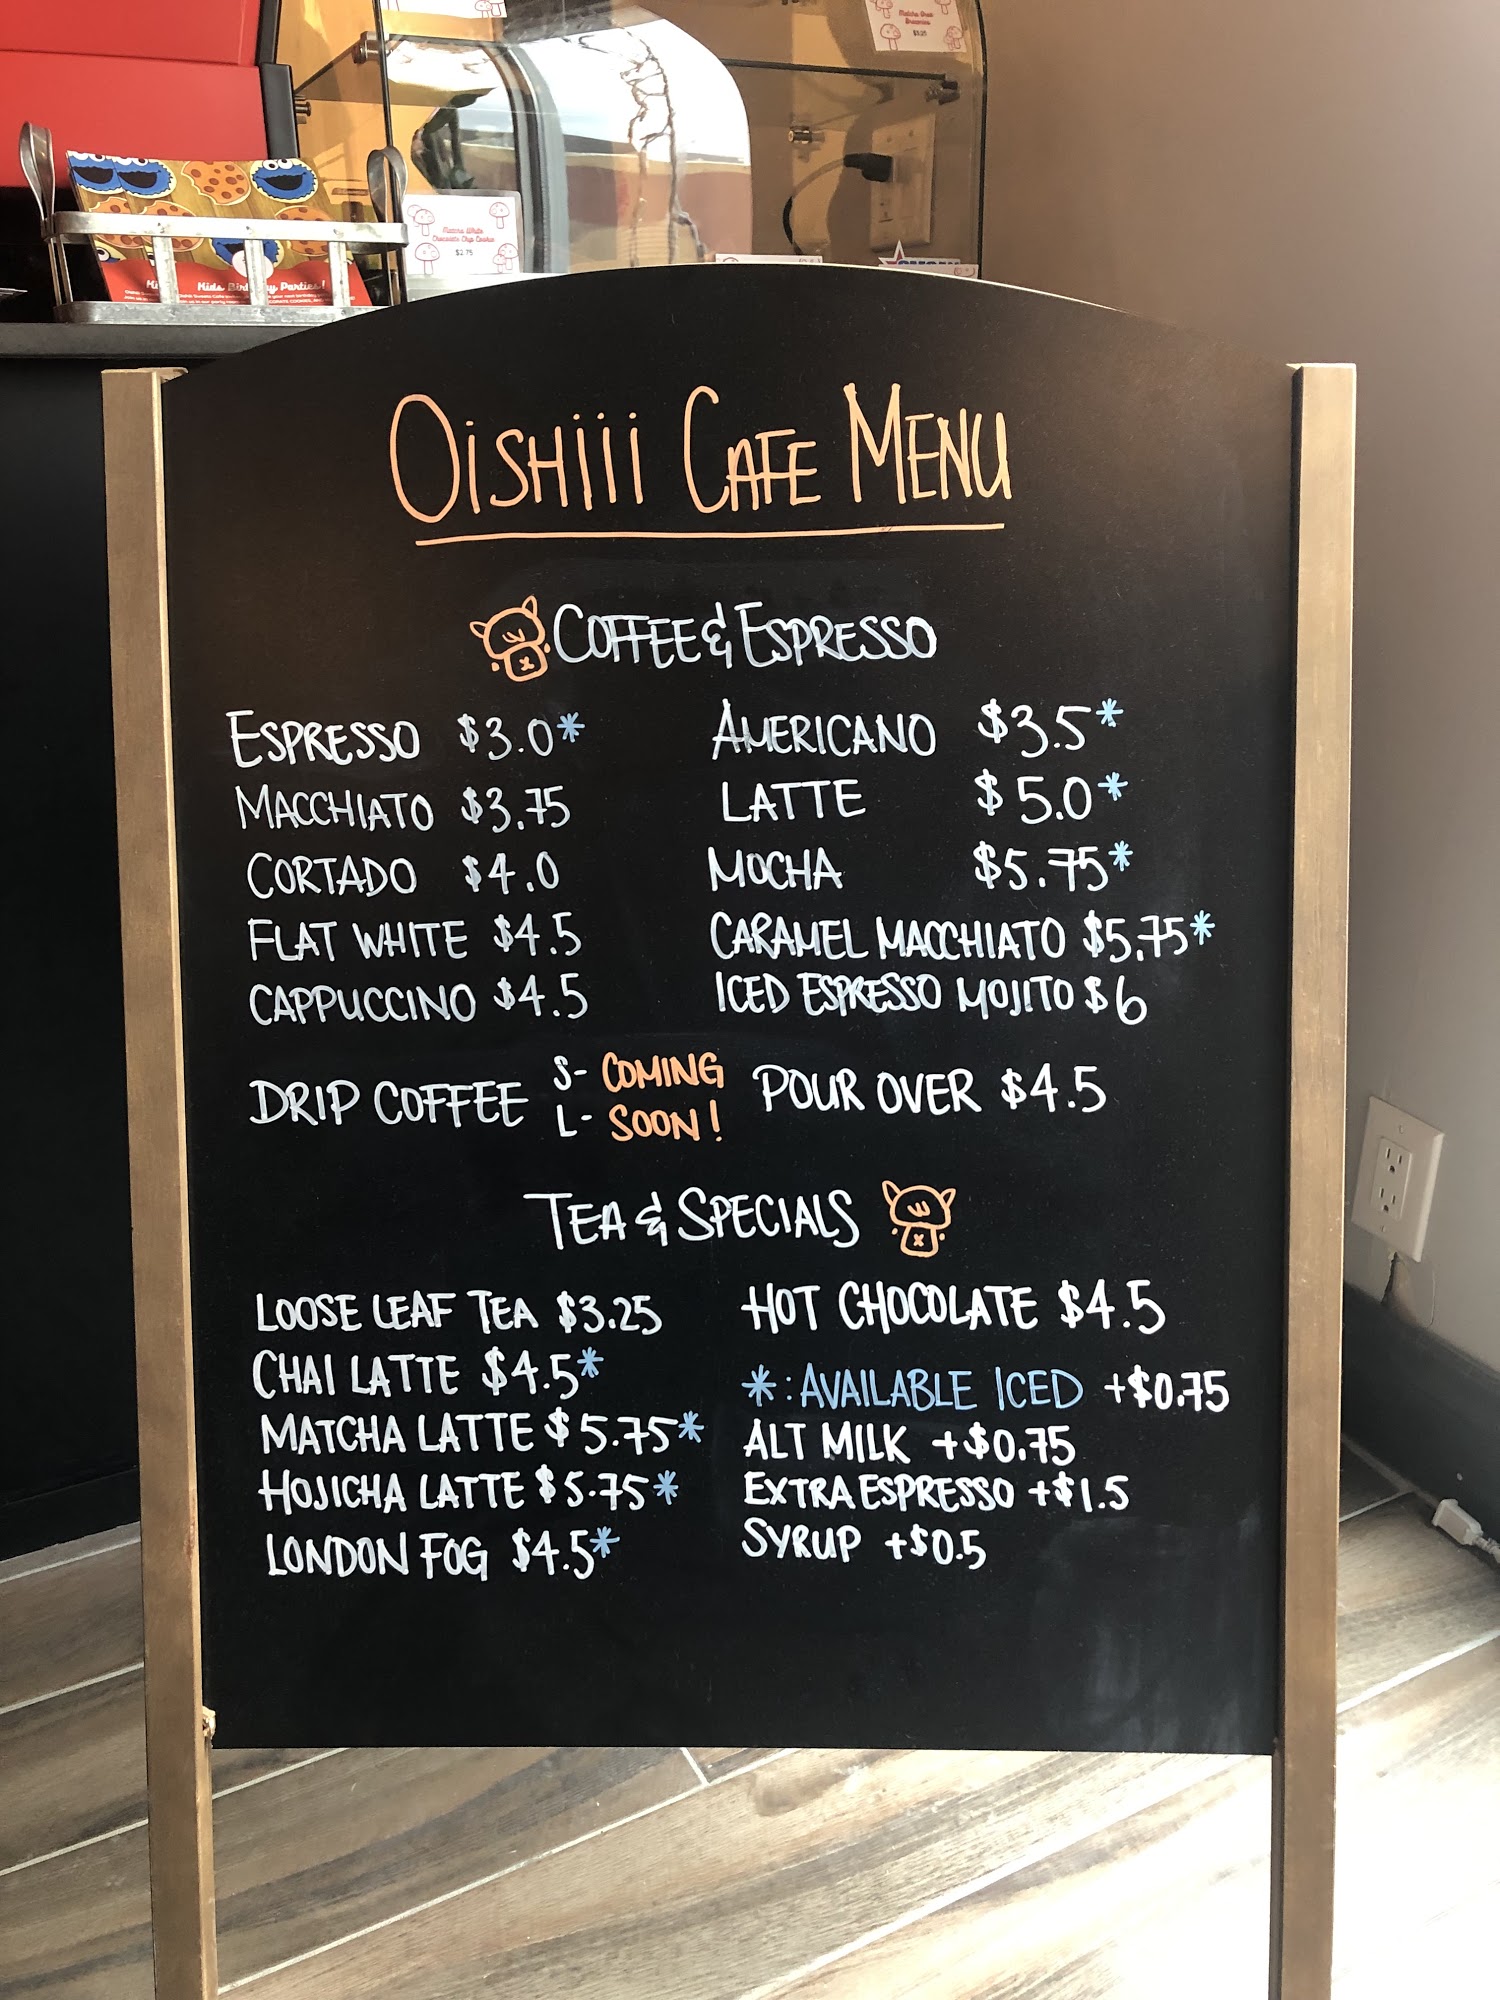 Matcha Oreo
Brownies
$3.25
Matcha White
Chocolate Chip Cookie
$2.75
Kids Birthday Parties!
OISHIII CAFE MENU
COFFEE & ESPRESSO
ESPRESSO $3.0*
MACCHIATO $3.75
CORTADO $4.0
FLAT WHITE $4.5
CAPPUCCINO $4.5
AMERICANO $3.5*
LATTE $5.0*
MOCHA $5.75*
CARAMEL MACCHIATO $5.75*
ICED ESPRESSO MOJITO $6
DRIP COFFEE S- COMING
L- SOON!
POUR OVER $4.5
TEA & SPECIALS
LOOSE LEAF TEA $3.25
CHAI LATTE $4.5*
MATCHA LATTE $5.75*
HOJICHA LATTE $5.75*
LONDON FOG $4.5*
HOT CHOCOLATE $4.5
*: AVAILABLE ICED +$0.75
ALT MILK +$0.75
EXTRA ESPRESSO +$1.5
SYRUP +$0.5